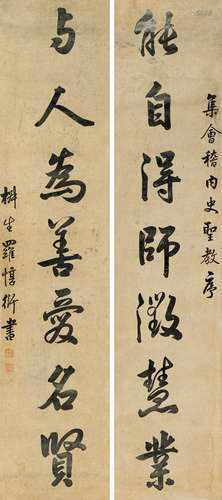 集會稽內史聖教序
能自得師澂慧業
与人為善愛名賢
椒生羅惇衍書